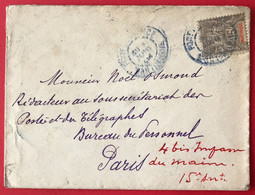 Monsieur Noël Durond
Rédacteur au sous secrétariat des
Postes et des Télégraphes
Bureau du Personnel
Paris
4 bis Impasse
du maine
15e Arrt